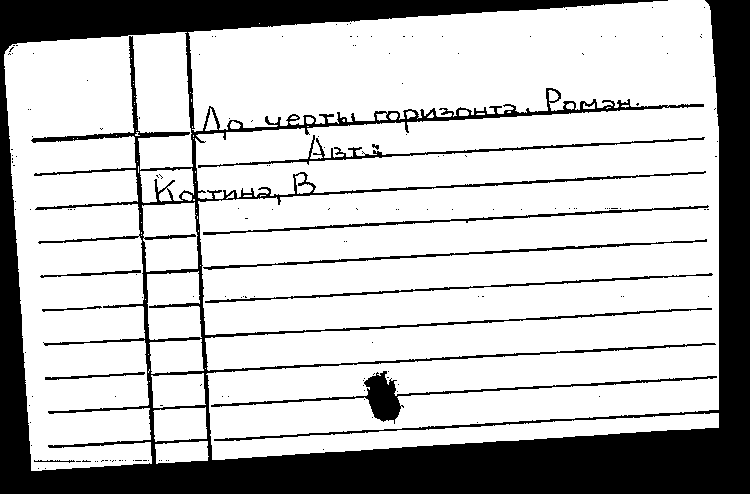 До черты горизонта. Роман.
Авт.:
Костина, В